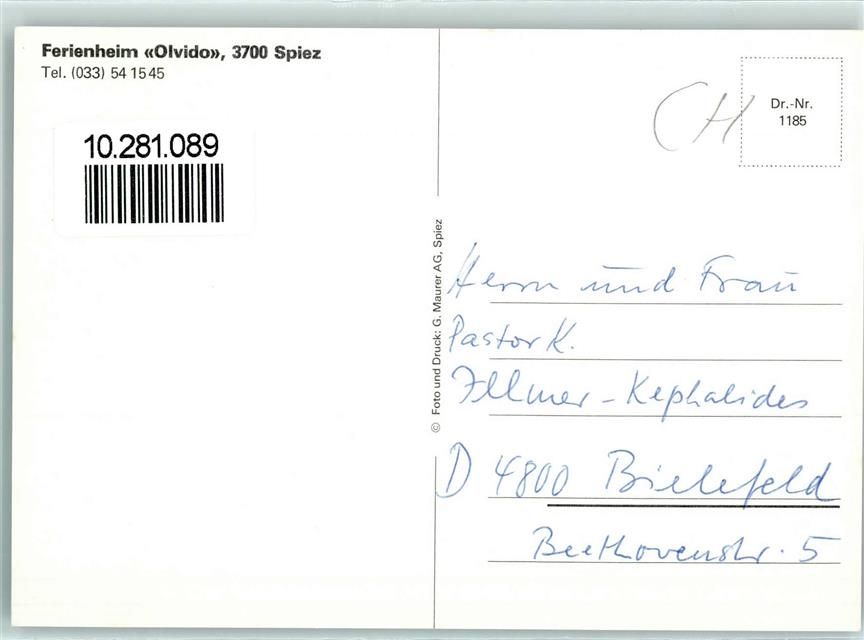 Ferienheim «Olvido», 3700 Spiez
Tel. (033) 54 15 45
10.281.089
CH
Dr.-Nr.
1185
© Foto und Druck: G. Maurer AG, Spiez
Herrn und Frau
Pastor K.
Illmer-Kephalides
D 4800 Bielefeld
Beethovenstr. 5